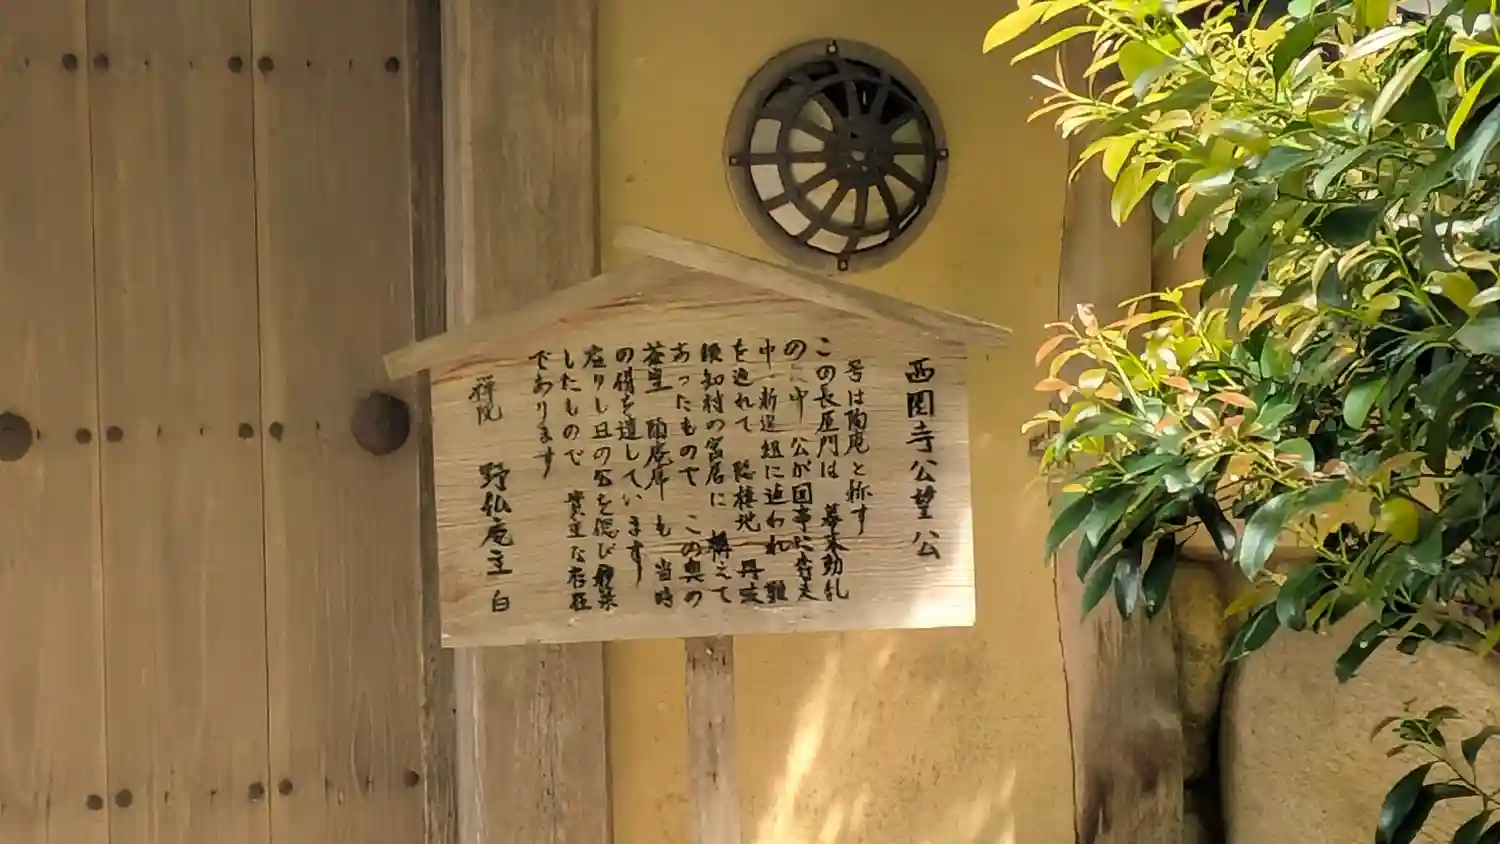 西園寺公望公
号は陶庵と称す
この長屋門は 幕末動乱
の 中 公が国事に奔走
中 新選組に追われ 難
を逃れて 隠棲地 丹波
須知村の寓居に 構えて
あったもので この奥の
茶室 陶庵席 も 当時
の儘を遺しています
在りし日の公を偲び 移築
したもので 貴重な存在
であります
禅院 野仏庵主 白